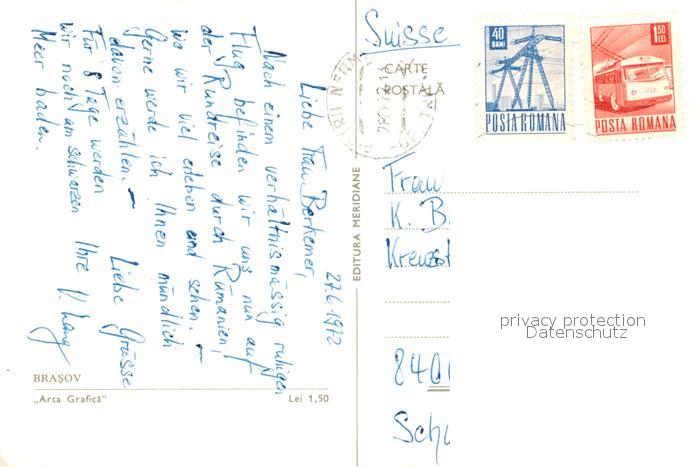 27.6.1972
Liebe Frau Berkemer,
Nach einem verhältnismässig ruhigen
Flug befinden wir uns nun auf
der Rundreise durch Rumänien,
wo wir viel erleben und sehen. –
Gerne werde ich Ihnen mündlich
davon erzählen. – Liebe Grüsse
Für 8 Tage werden Ihre V. Lang
wir noch am schwarzen
Meer baden.
BRAȘOV
„Arta Grafică"
Lei 1,50
EDITURA MERIDIANE
CARTE
POȘTALĂ
Suisse
40
BANI
POSTA ROMANA
1,50
LEI
POSTA ROMANA
Frau
K. B
Kreuzst
privacy protection
Datenschutz
840
Sch